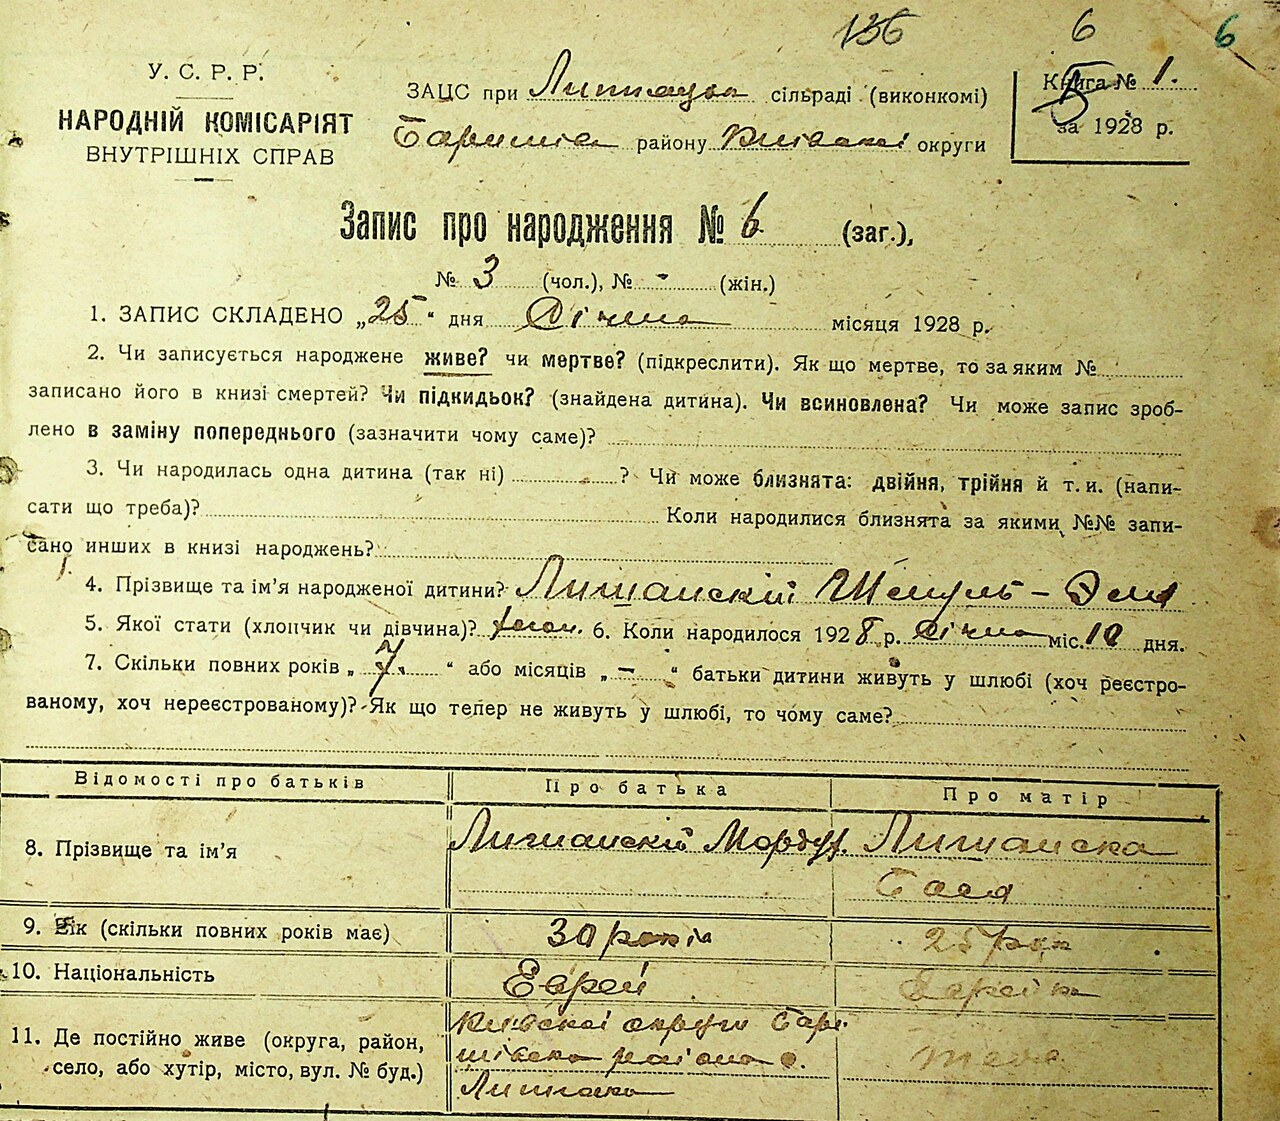 136 6 6
У. С. Р. Р.
НАРОДНІЙ КОМІСАРІЯТ
ВНУТРІШНІХ СПРАВ
ЗАЦС при сільраді (виконкомі)
району округи
Книга № 1.
5
за 1928 р.
Запис про народження № 6 (заг.),
№ 3 (чол.), № - (жін.)
1. ЗАПИС СКЛАДЕНО „25“ дня Січня місяця 1928 р.
2. Чи записується народжене живе? чи мертве? (підкреслити). Як що мертве, то за яким №
записано його в книзі смертей? Чи підкидьок? (знайдена дитина). Чи всиновлена? Чи може запис зроб-
лено в заміну попереднього (зазначити чому саме)?
3. Чи народилась одна дитина (так ні) ? Чи може близнята: двійня, трійня й т. и. (напи-
сати що треба)? Коли народилися близнята за якими №№ запи-
сано инших в книзі народжень?
4. Прізвище та ім'я народженої дитини? Лишанскій Шмуль -
5. Якої стати (хлопчик чи дівчина)? 6. Коли народилося 1928 р. Січня міс. дня.
7. Скільки повних років „7.“ або місяців „-“ батьки дитини живуть у шлюбі (хоч реєстро-
ваному, хоч нереєстрованому)? Як що тепер не живуть у шлюбі, то чому саме?
Відомості про батьків Про батька Про матір
8. Прізвище та ім'я Лишанскій Мордух. Лишанска
Бася
9. Вік (скільки повних років має) 30 років 25 рок
10. Національність Еврей Еврейка
11. Де постійно живе (округа, район,
село, або хутір, місто, вул. № буд.)
округи